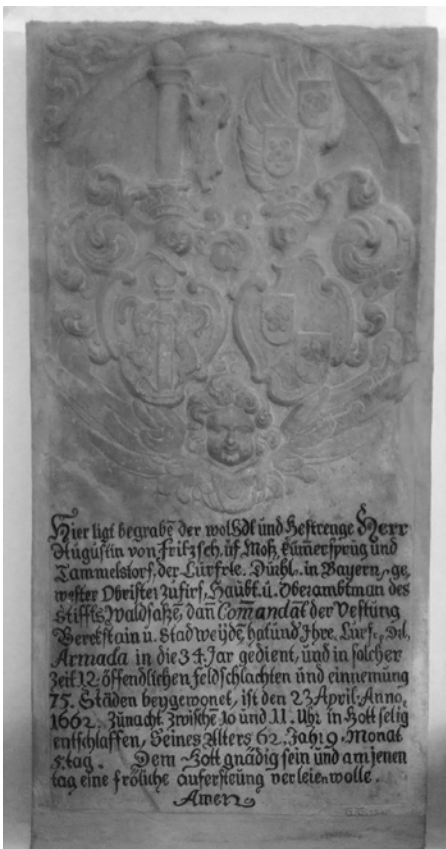 Hier ligt begrabē der wolEdl und Gestrenge Herr
Augustin von Fritzsch, uf Moß, kümersprug und
Tammelstorf, der Curfrle. Duhl. in Bayern, ge,
wester Obrister zu fües, Haubt. u. Oberambtman des
Stiffts Waldsaßē, dañ Comandāt der Vestung
Parckstain u. Stadweyde, hat und Ihre. Curf. Dl,
Armada in die 34. Jar gedient, und in solcher
Zeit 12 öffendlichen feldschlachten und einnemung
75. Städen beygewonet, ist den 23 April. Anno,
1662. Zunacht. Zwischē 10 und 11. Uhr in Gott selig
entschlaffen, Seines Alters 62. Jahr 9. Monat
5. tag. Dem Gott gnädig sein und am jenen
tag eine fröliche auferstëung verleien wolle.
Amen